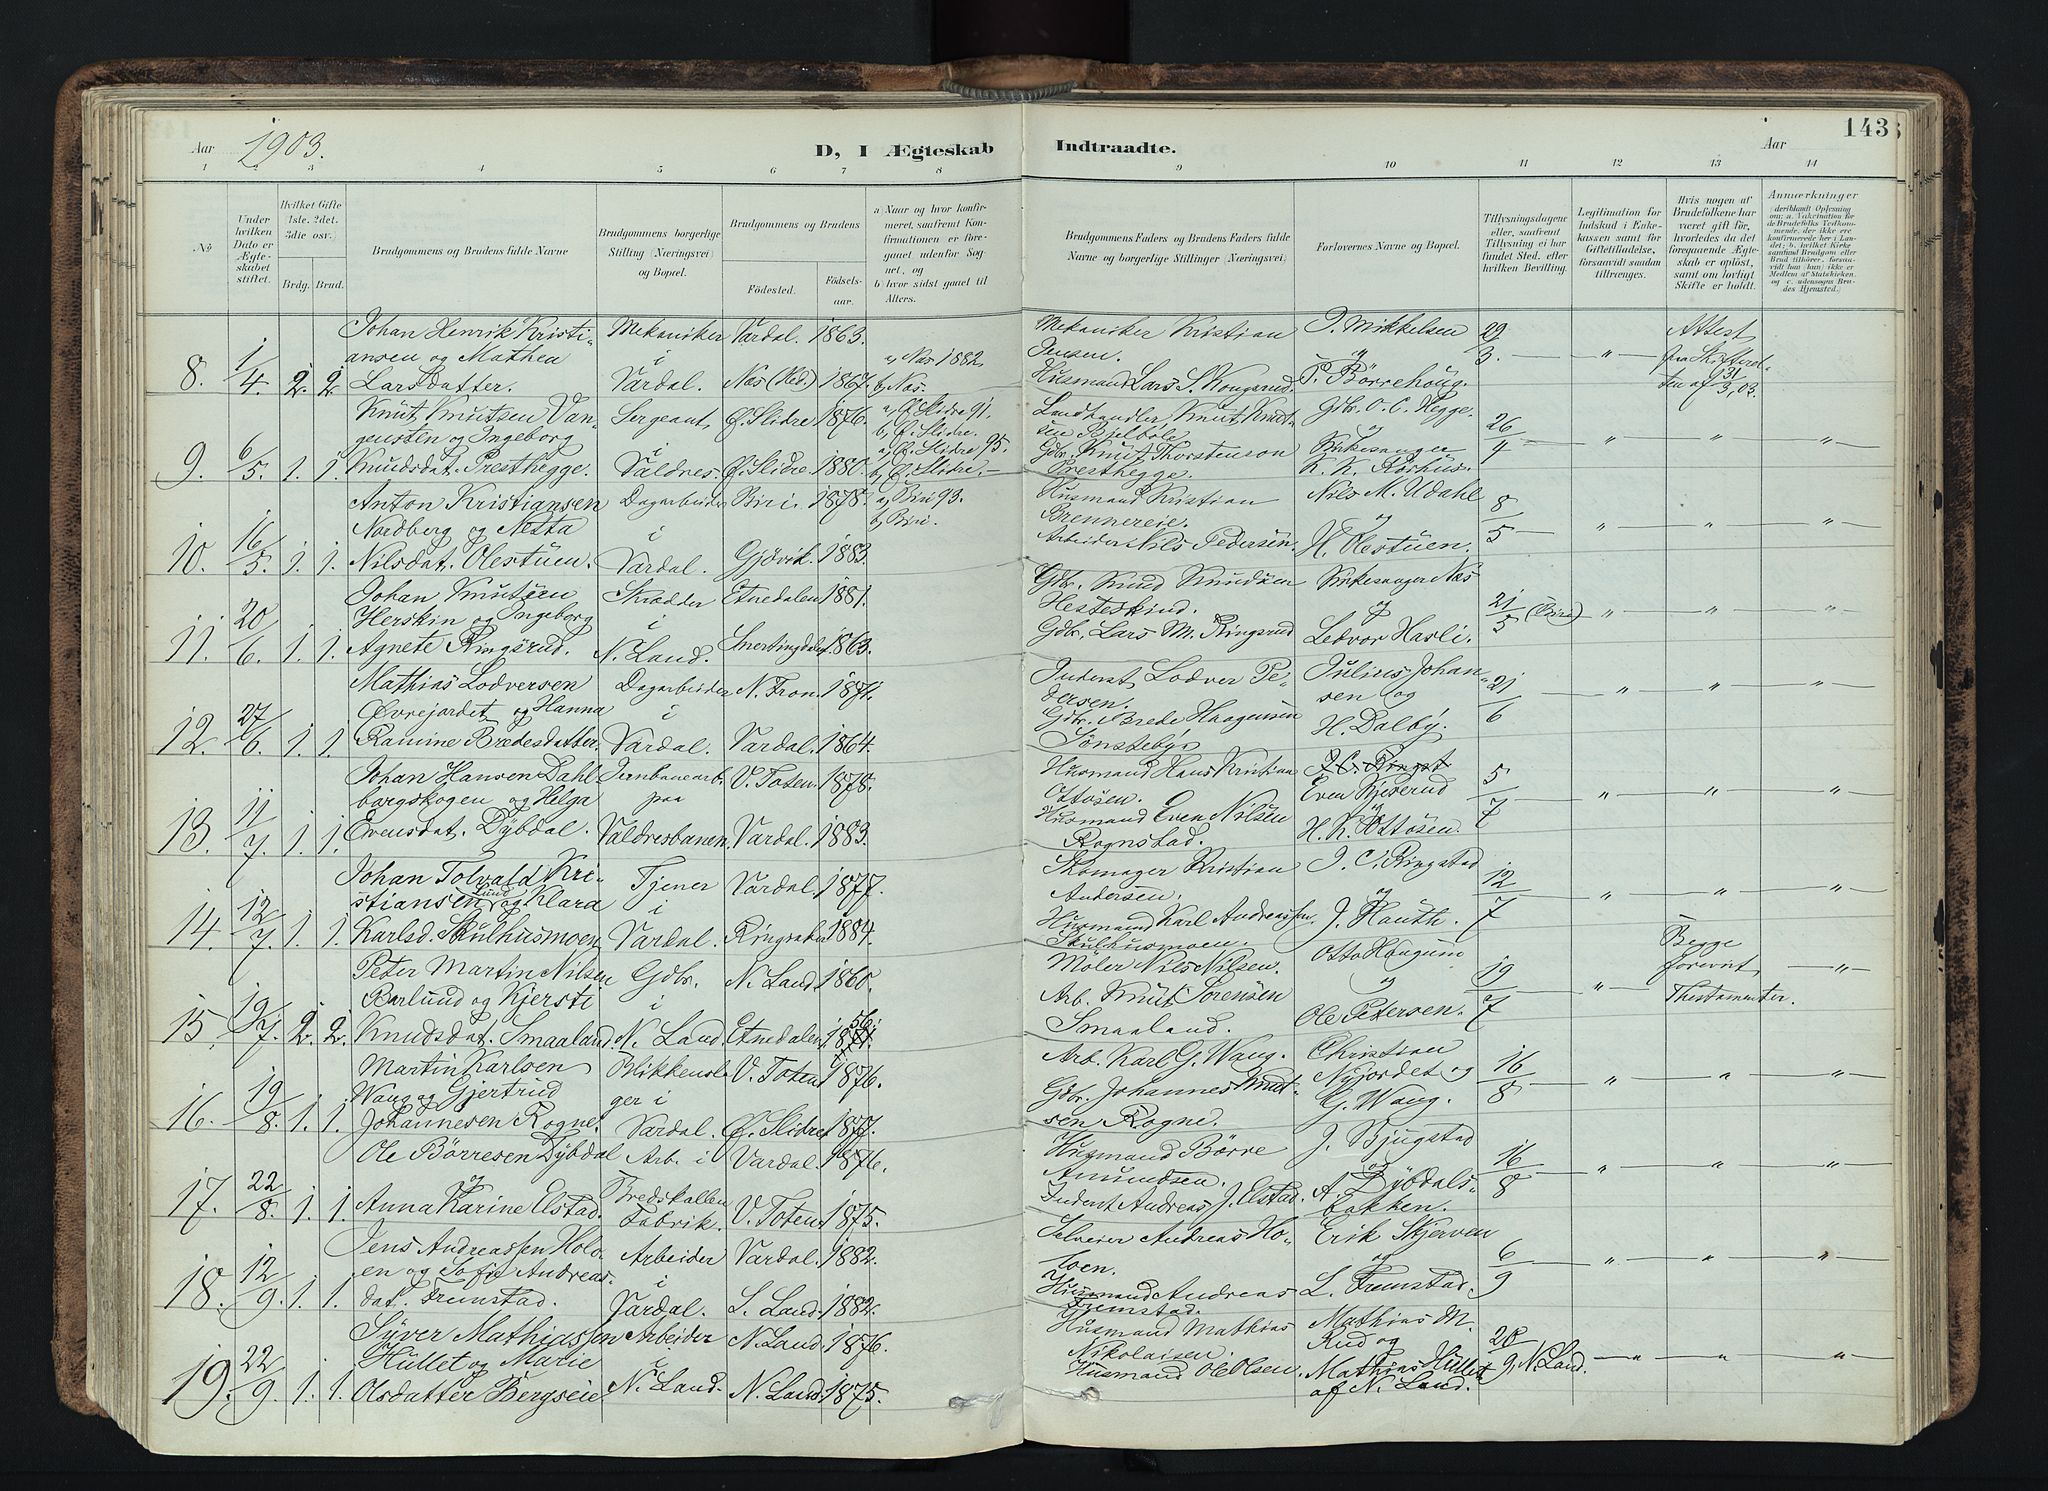 Aar 1903.
D, I Ægteskab Indtraadte.
Aar
143
1 2 3 4 5 6 7 8 9 10 11 12 13 14
No
Under hvilken Dato er Ægteskabet stiftet.
Hvilket Gifte 1ste. 2det. 3die osv.
Brdg. Brud.
Brudgommens og Brudens fulde Navne
Brudgommens borgerlige Stilling (Næringsvei) og Bopæl.
Brudgommens og Brudens
Fødested.
Fødselsaar.
a) Naar og hvor konfirmeret, saafremt Konfirmationen er foregaaet udenfor Sognet, og
b) hvor sidst gaaet til Alters.
Brudgommens Faders og Brudens Faders fulde Navne og borgerlige Stillinger (Næringsvei).
Forlovernes Navne og Bopæl.
Tillysningsdagene eller, saafremt Tillysning ei har fundet Sted, efter hvilken Bevilling.
Legitimation for Indskud i Enkekassen samt for Giftetilladelse, forsaavidt saadan tiltrænges.
Hvis nogen af Brudefolkene har været gift før, hvorledes da det foregaaende Ægteskab er opløst, samt om lovligt Skifte er holdt.
Anmærkninger
8. 1/4 2. 2. Johan Henrik Kristiansen og Mathea Larsdatter.
Mekaniker i Vardal.
Vardal. 1863.
Næs (Hed.) 1867. a) Næs 1882. b) Næs.
Mekaniker Kristian Jensen.
Husmand Lars S. Kongsrud.
J. Mikkelsen og P. Börrehoug.
29/3. — " — Attest fra Skifteretten af 31/3, 03.
9. 6/5 1. 1. Knut Knutsen Vangensten og Ingeborg Knudsdat. Presthegge.
Sergeant i Valdres.
Ø. Slidre 1876. a) Ø. Slidre 91. b) Ø. Slidre.
Ø. Slidre 1880. a) Ø. Slidre 95. b) Ø. Slidre. —
Landhandler Knut Knutsen Bjelbøle
Gdbr. Knut Thorstenson Presthegge.
Gdbr. O. C. Hegge. og Kirkesanger K. K. Rørhus.
26/4 — " — " — "
10. 16/5. 1. 1. Anton Kristiansen Nordberg og Nesta Nilsdat. Olestuen.
Dagarbeider i Vardal.
Biri. 1878. a) Biri 93. b) Biri.
Gjövik. 1883.
Husmand Kristian Brennereie.
Arbeider Nils Pedersen.
Nils M. Udahl og H. Olestuen.
8/5 — " — " — "
11. 20/6. 1. 1. Johan Knutsen Herskin og Ingeborg Agnete Ringsrud.
Skrædder i N. Land.
Etnedalen 1881.
Snertingdalen 1863.
Gdbr. Knud Knudsen Hesteskind.
Gdbr. Lars M. Ringsrud
Kirkesanger Næs og Ledvor Havli.
21/5 (Biri) " — " — "
12. 27/6. 1. 1. Mathias Lodversen Øvrejordet og Hanna Ramine Bredesdatter.
Dagarbeider i Vardal.
N. Fron. 1871.
Vardal. 1864.
Inderst Lodver Pedersen.
Gdbr. Brede Haagensen Sønsteby.
Julius Johansen og H. Dalby.
21/6 — " — " — "
13. 11/7. 1. 1. Johan Hansen Dahlborgskogen og Helga Evensdat. Dybdal.
Jernbanearb. paa Valdresbanen.
V. Toten. 1878.
Vardal. 1883.
Husmand Hans Kristian Ottosen.
Husmand Even Nilsen Rognstad.
Even Kjiserud og H. K. Ottosen.
5/7 — " — " — "
14. 12/7. 1. 1. Johan Tolvald Kristiansen Lund og Klara Karlsd. Skulhusmoen
Tjener i Vardal.
Vardal. 1877.
Ringsaker 1884.
Skomager Kristian Andersen.
Husmand Karl Andreassen. Skulhusmoen.
J. C. Ringstad og J. Hauth.
12/7 — " — " — "
15. 19/7. 2. 2. Peter Martin Nilsen Barlund og Kjersti Knudsdat. Smaaland.
Gdbr. i N. Land.
N. Land 1860.
Etnedalen. 1856.
Møler Nils Nilsen.
Arb. Knut Sørensen Smaaland.
Otto Haagum og Ole Petersen.
19/7 — " — Begge forevist Thestamenter. — "
16. 19/8. 1. 1. Martin Karlsen Wang og Gjertrud Johannesen Rogne.
Blikkenslager i Vardal.
V. Toten 1876.
Ø. Slidre 1877.
Arb. Karl G. Wang.
Gdbr. Johannes Knutsen Rogne.
Christian Nyjordet og G. Wang.
16/8 — " — " — "
17. 22/8. 1. 1. Ole Børresen Dybdal og Anna Karine Elstad.
Arb. i Bredskallen Fabrik.
Vardal. 1876.
V. Toten 1875.
Husmand Børre Amundsen.
Inderst Andreas J. Elstad.
J. Bjugstad og A. Dybdalsbakken.
16/8 — " — " — "
18. 12/9. 1. 1. Jens Andreassen Holoen og Sofie Andreasdat. Fremstad.
Arbeider i Vardal.
Vardal. 1882.
S. Land. 1882.
Selveier Andreas Holoen.
Husmand Andreas Fremstad.
Erik Skjerven og L. Fremstad.
6/9 — " — " — "
19. 22/9. 1. 1. Syver Mathiassen Hullet og Marie Olsdatter Bergseie
Arbeider i N. Land.
N. Land. 1876.
N. Land 1875.
Husmand Mathias Nikolaisen.
Husmand Ole Olsen.
Mathias M. Rud og Mathias Hullet af N. Land.
20/9, N. Land. — " — " — "